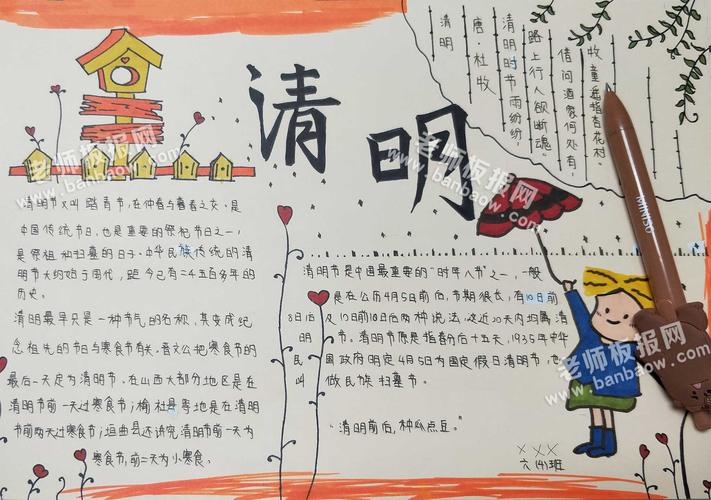 清明
清明
唐·杜牧
清明时节雨纷纷,
路上行人欲断魂。
借问酒家何处有,
牧童遥指杏花村。
清明节又叫踏青节,在仲春与暮春之交。是
中国传统节日,也是重要的祭祀节日之一,
是祭祖和扫墓的日子。中华民族传统的清
明节大约始于周代,距今已有二千五百多年的
历史。
清明最早只是一种节气的名称,其变成纪
念祖先的节日与寒食节有关。晋文公把寒食节的
最后一天定为清明节。在山西大部分地区是在
清明节前一天过寒食节;榆社县等地是在清明
节前两天过寒食节;垣曲县还讲究清明节前一天为
寒食节,前二天为小寒食。
清明节是中国最重要的“时年八节”之一,一般
是在公历4月5日前后,节期很长,有10日前
8日后及10日前10日后两种说法,这近20天内均属清
明节。清明节原是指春分后十五天,1935年中华
民国政府明定4月5日为国定假日清明节,也
叫做民族扫墓节。
“清明前后,种瓜点豆。”
×××
六(4)班
老师板报网
www.banbaow.com
老师板报网
www.banbaow.com
老师板报网
www.banbaow.com
MINISO